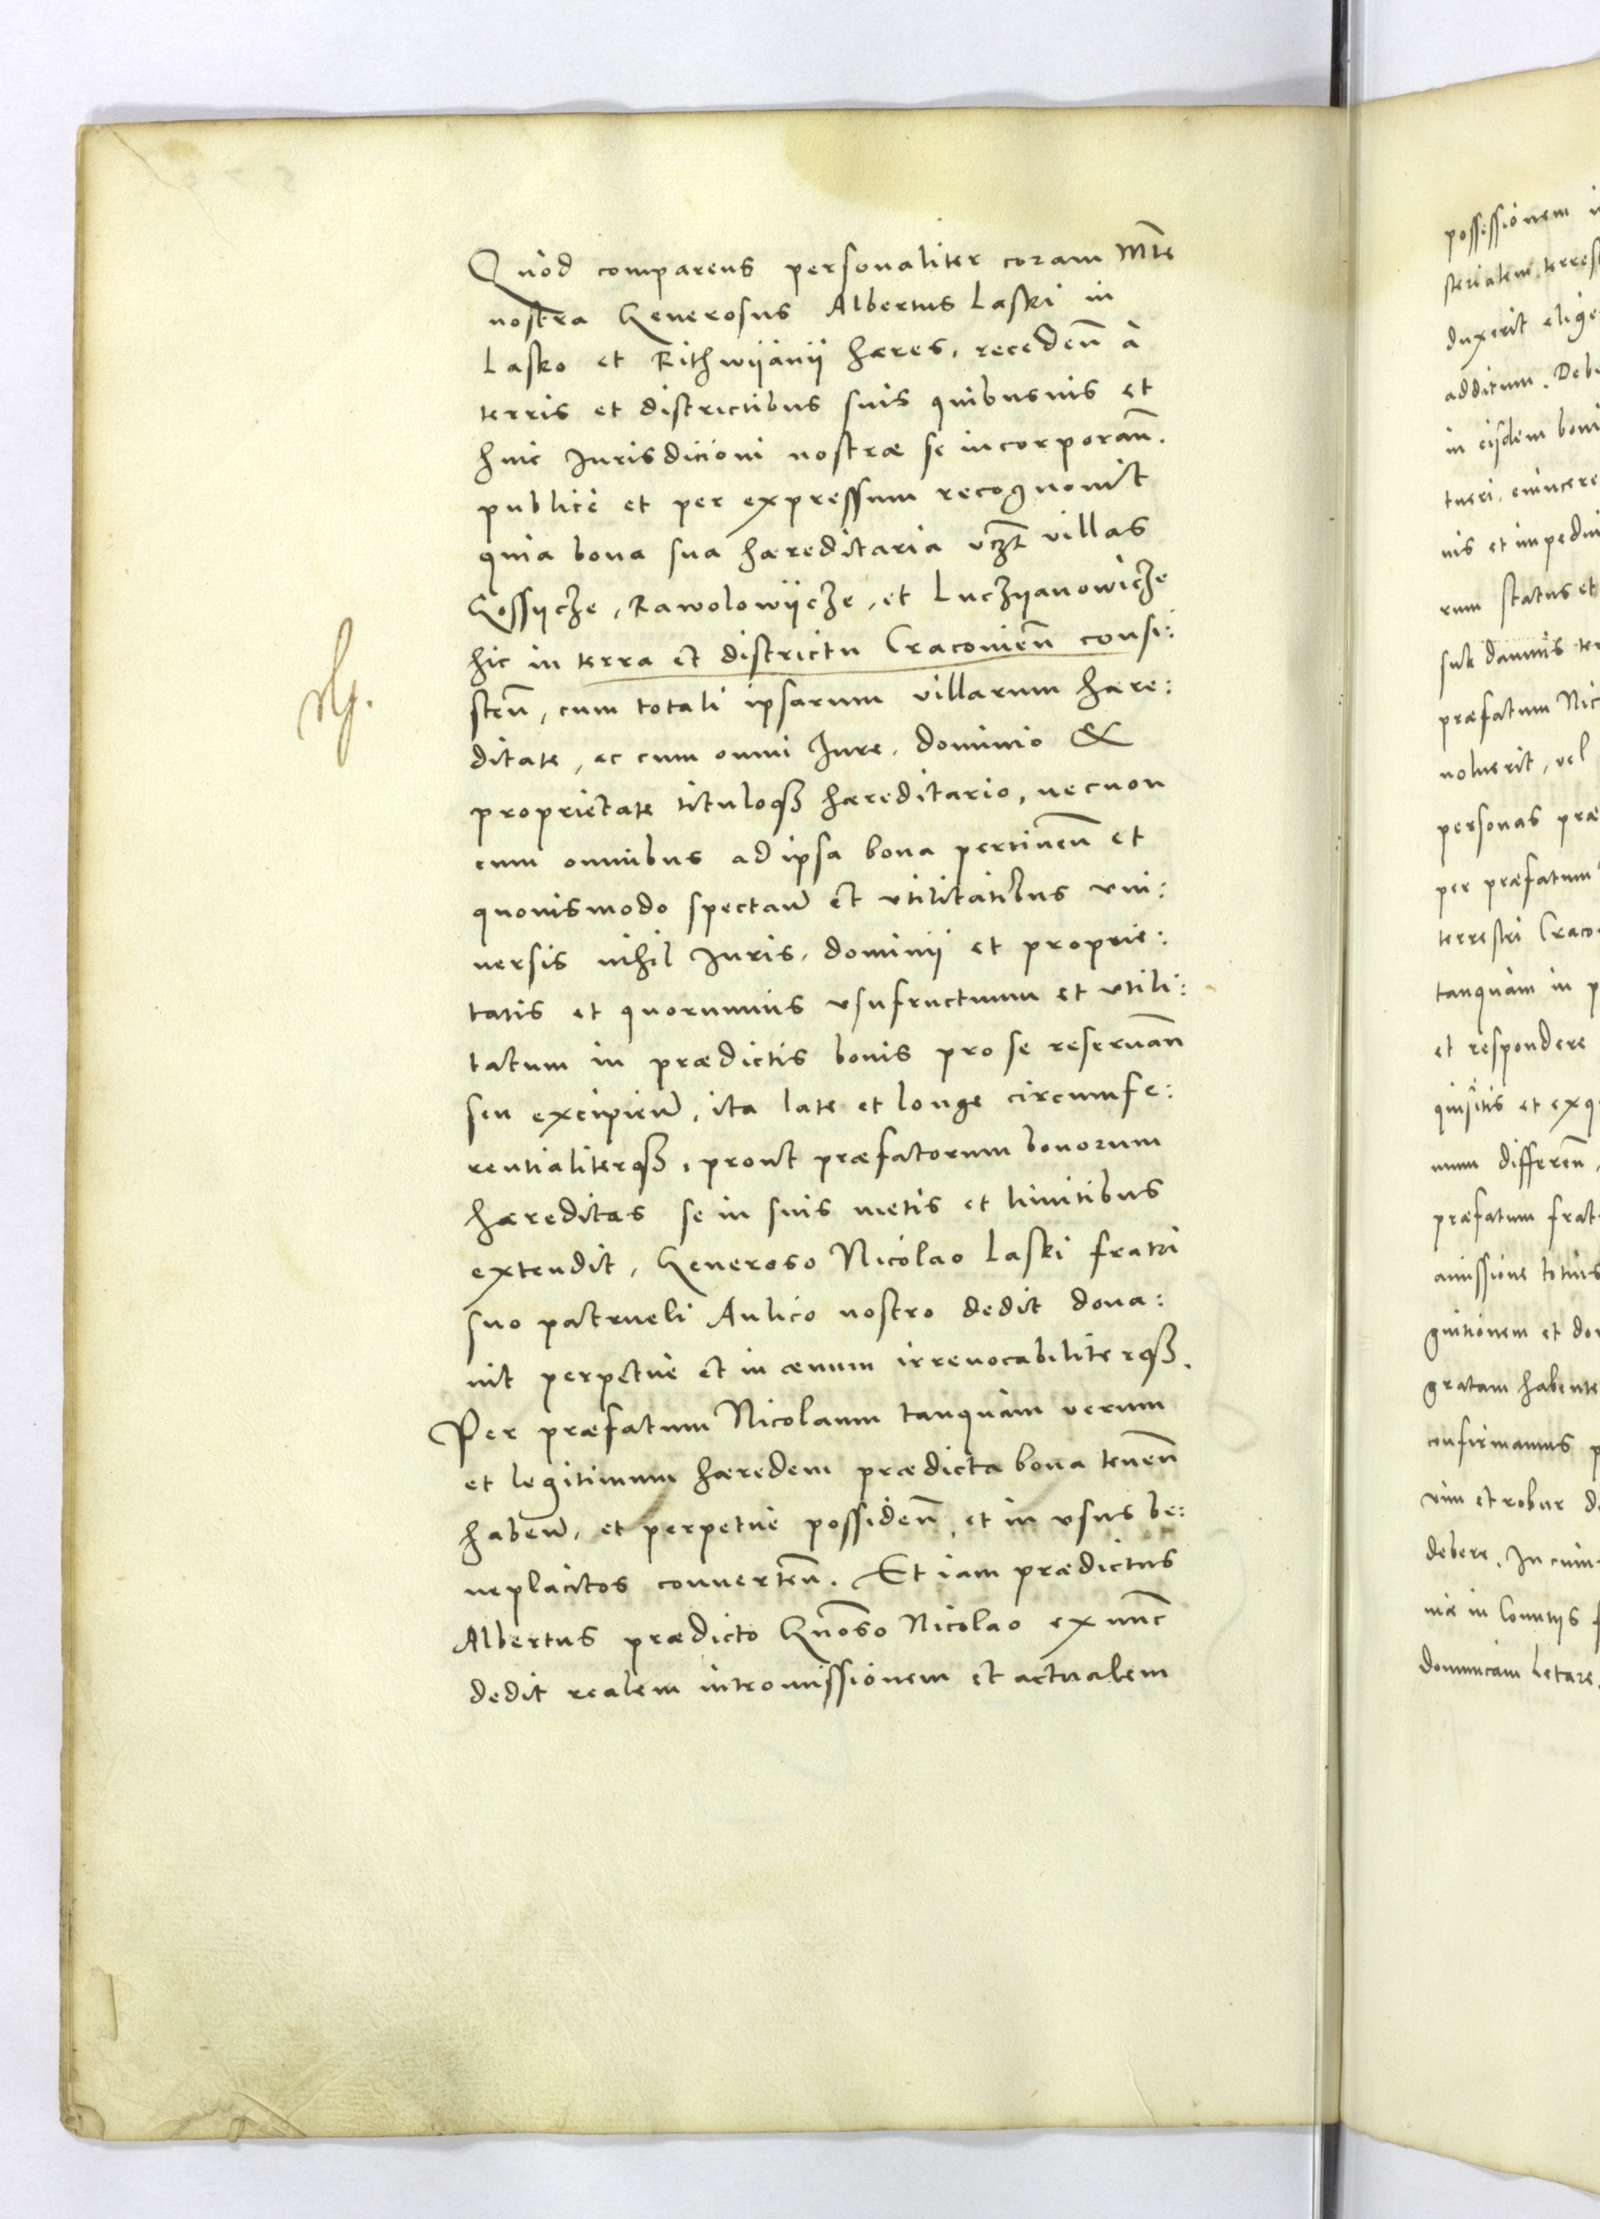 Quod comparens personaliter coram Mte
nostra Generosus Albertus Laski in
Lasko et Rithwijanij hæres, recedeñ à
terris et districtibus suis quibusuis et
huic Jurisdicioni nostræ se incorporañ.
publice et per expressum recognouit
quia bona sua hæreditaria vczt villas
Gossycze, Rawolowijcze, et Luczyanowicze
hic in terra et districtu Cracouieñ consi:
steñ, cum totali ipsarum villarum hære:
ditate, ac cum omni Jure, dominio &
proprietate tituloq3 hæreditario, necnon
cum omnibus ad ipsa bona pertineñ et
quouismodo spectañ et vtilitatibus vni:
uersis nihil Juris, dominij et proprie:
tatis et quorumuis vsufructuum et vtili:
tatum in prædictis bonis pro se reseruañ
seu excipieñ, ita late et longe circumfe:
rentialiterq3, prout præfatorum bonorum
hæreditas se in suis metis et limitibus
extendit, Generoso Nicolao Laski fratri
suo patrueli Aulico nostro dedit dona:
uit perpetue et in æuum irreuocabiliterq3.
Per præfatum Nicolaum tanquam verum
et legitimum hæredem prædicta bona teneñ
habeñ, et perpetue possideñ, et in vsus be:
neplacitos conuerteñ. Et iam prædictus
Albertus prædicto Gñoso Nicolao ex nunc
dedit realem intromissionem et actualem
possessionem
duxerit elige
additum. Deb
in eisdem boni
tueri, euincere
nis et impedi
rum status et
sub damnis
præfatum Nic
noluerit, vel
personas præ
per præfatum
terrestri Craco
tanquam in p
et respondere
quisitis et exq
num differeñ,
præfatum frat
amissione totius
gnitionem et do
gratam habente
confirmamus p
vim et robur d
debere. In cuius
uiæ in Conuentijs
dominicam Letare.